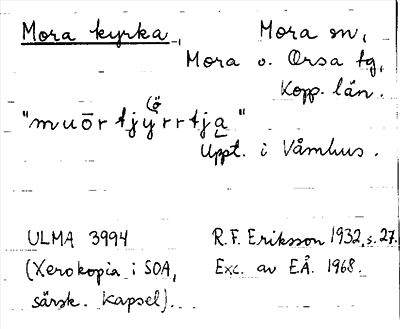 Mora kyrka, Mora sn,
Mora o. Orsa tg,
Kopp. län.
(ö
"muōrtjyrrtja"
Uppt. i Våmhus.
ULMA 3994 R.F. Eriksson 1932, s. 27.
(Xerokopia i SOA, Exc. av E.Å. 1968.
särsk. kapsel).